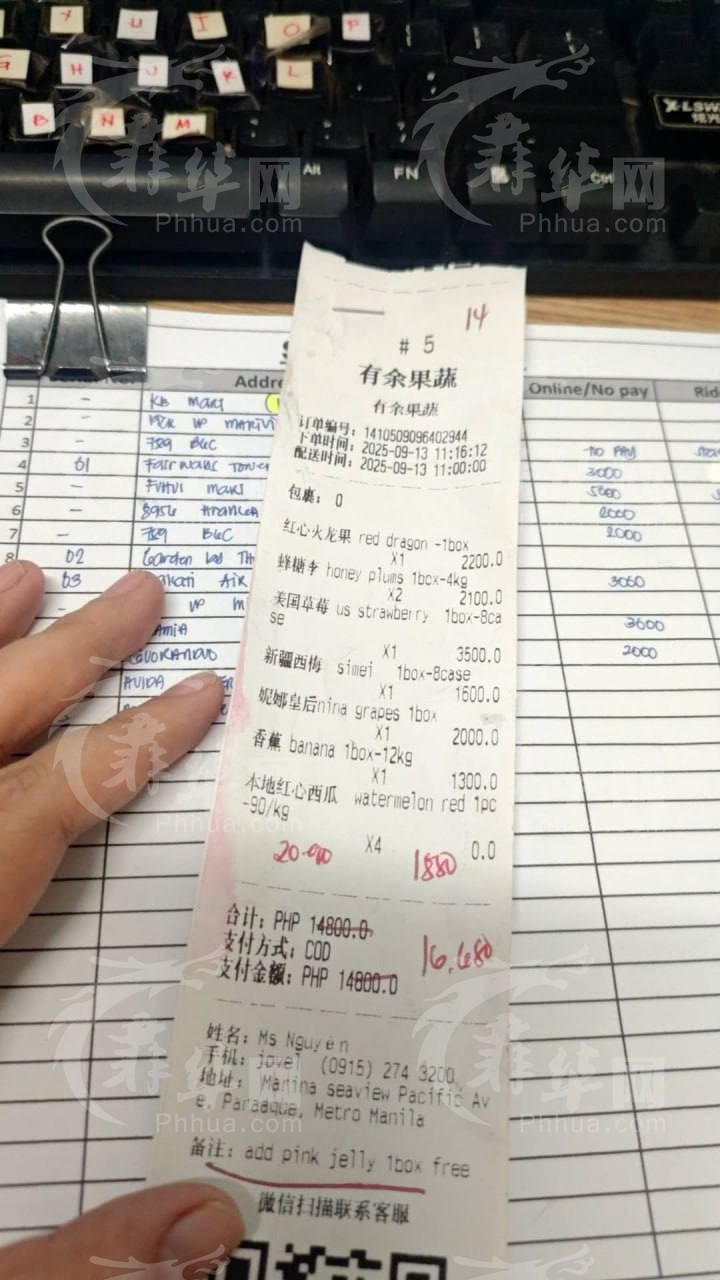 Y U I O P
G H J K L
B N M
X-LSW
炫光
Alt FN Ctrl
菲华网
Phhua.com
Addre
Online/No pay
Rid
1 - KB MART
2 -
3 - 789 BGC
no pay
4 01
3000
5 -
5000
6 -
2000
7 - 789 BGC
2000
8 02
03
AIR
3000
UP M
3600
2000
AVIDA
14
# 5
有余果蔬
有余果蔬
订单编号: 1410509096402944
下单时间: 2025-09-13 11:16:12
配送时间: 2025-09-13 11:00:00
包裹: 0
红心火龙果 red dragon -1box
X1 2200.0
蜂糖李 honey plums 1box-4kg
X2 2100.0
美国草莓 us strawberry 1box-8ca
se
X1 3500.0
新疆西梅 simei 1box-8case
X1 1600.0
妮娜皇后nina grapes 1box
X1 2000.0
香蕉 banana 1box-12kg
X1 1300.0
本地红心西瓜 watermelon red 1pc
-90/kg
X4 0.0
1880
合计: PHP 14800.0
支付方式: COD
16,680
支付金额: PHP 14800.0
姓名: Ms Nguyen
手机: jovel (0915) 274 3200
地址: Marina seaview Pacific Av
e, Paraaque, Metro Manila
备注: add pink jelly 1box free
微信扫描联系客服